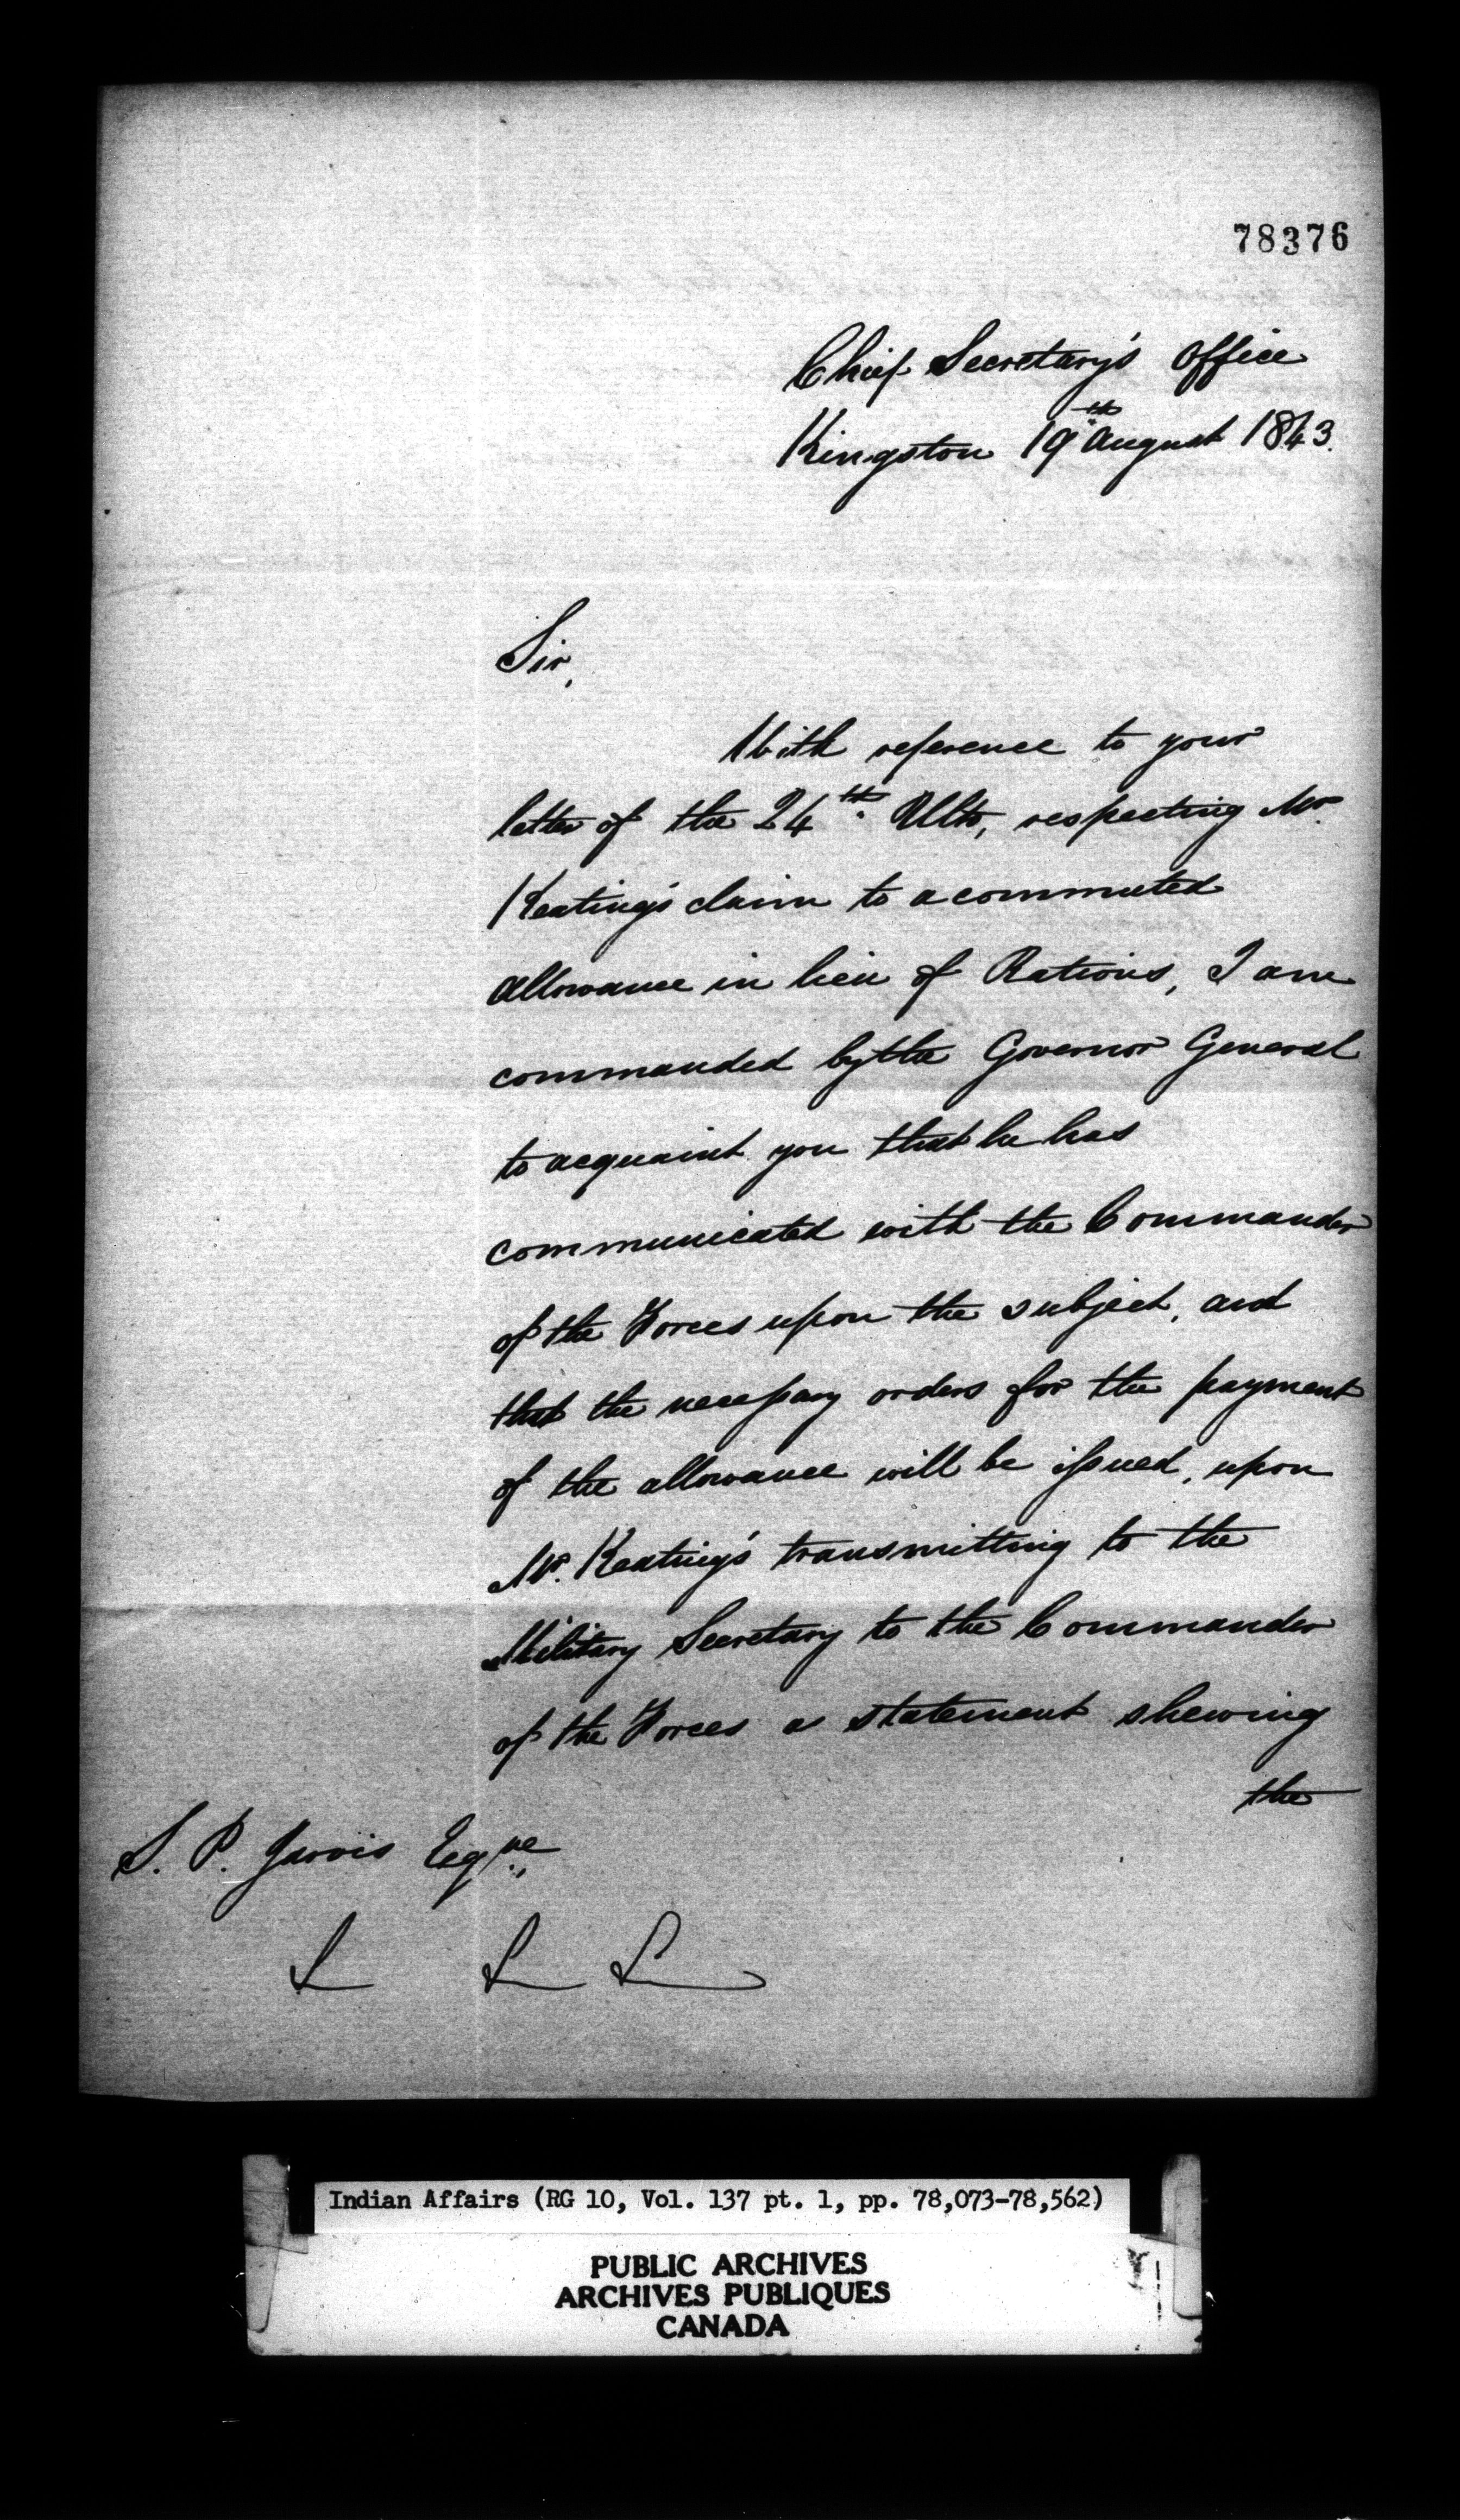 78376
Chief Secretary's Office
Kingston 19th August 1843.
Sir,
With reference to your
letter of the 24th Ulto, respecting Mr.
Keating's claim to a commuted
allowance in lieu of Rations, I am
commanded by the Governor General
to acquaint you that he has
communicated with the Commander
of the Forces upon the subject, and
that the necessary orders for the payment
of the allowance will be issued, upon
Mr. Keating's transmitting to the
Military Secretary to the Commander
of the Forces a statement shewing
the
S. P. Jarvis Esqre
& & &
Indian Affairs (RG 10, Vol. 137 pt. 1, pp. 78,073-78,562)
PUBLIC ARCHIVES
ARCHIVES PUBLIQUES
CANADA